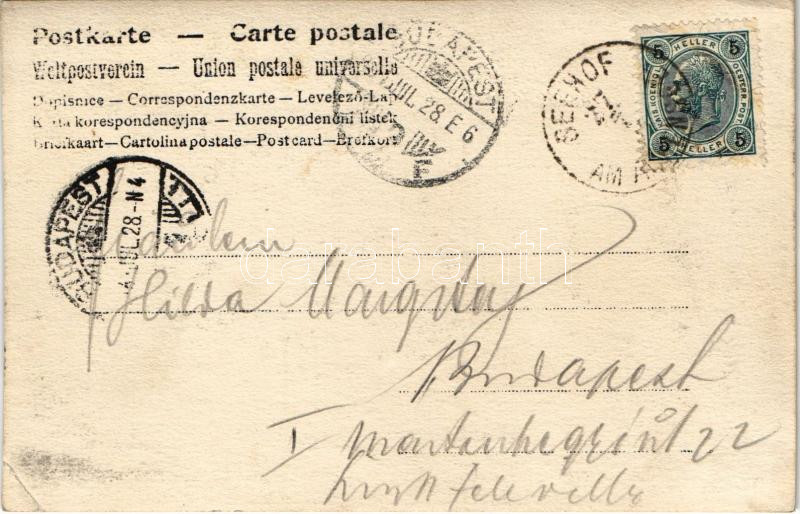 Postkarte — Carte postale
Weltpostverein — Union postale universelle
Dopisnice — Correspondenzkarte — Levelező-Lap
Karta korespondencyjna — Korespondenčni listek
Briefkaart — Cartolina postale — Post card — Brefkort
BUDAPEST
JUL. 28. E 6
F
SEEHOF
AM
5 HELLER 5
KAIS. KOENIGL. OESTERR. POST
5 HELLER 5
BUDAPEST
JUL. 28. N 4
darabanth
Fräulein
Hilda
Budapest
I 22